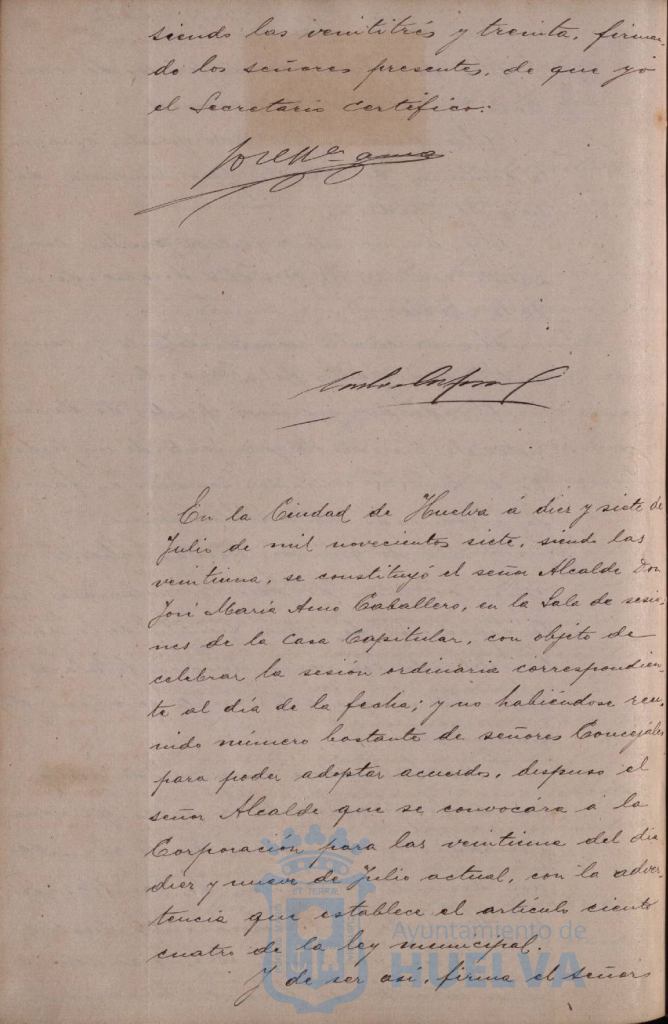 siendo las veintitrés y treinta, firman-
do los señores presentes, de que yo
el Secretario certifico:
José Mª Amo
En la Ciudad de Huelva á diez y siete de
Julio de mil novecientos siete, siendo las
veintiuna, se constituyó el señor Alcalde Don
José María Amo Caballero, en la Sala de sesio-
nes de la Casa Capitular, con objeto de
celebrar la sesión ordinaria correspondien-
te al día de la fecha; y no habiéndose reu-
nido número bastante de señores Concejales
para poder adoptar acuerdos, dispuso el
señor Alcalde que se convocára á la
Corporación para las veintiuna del dia
diez y nueve de Julio actual, con la adver-
tencia que establece el artículo ciento
cuatro de la ley municipal.
Y de ser así, firma el señor
Ayuntamiento de
HUELVA